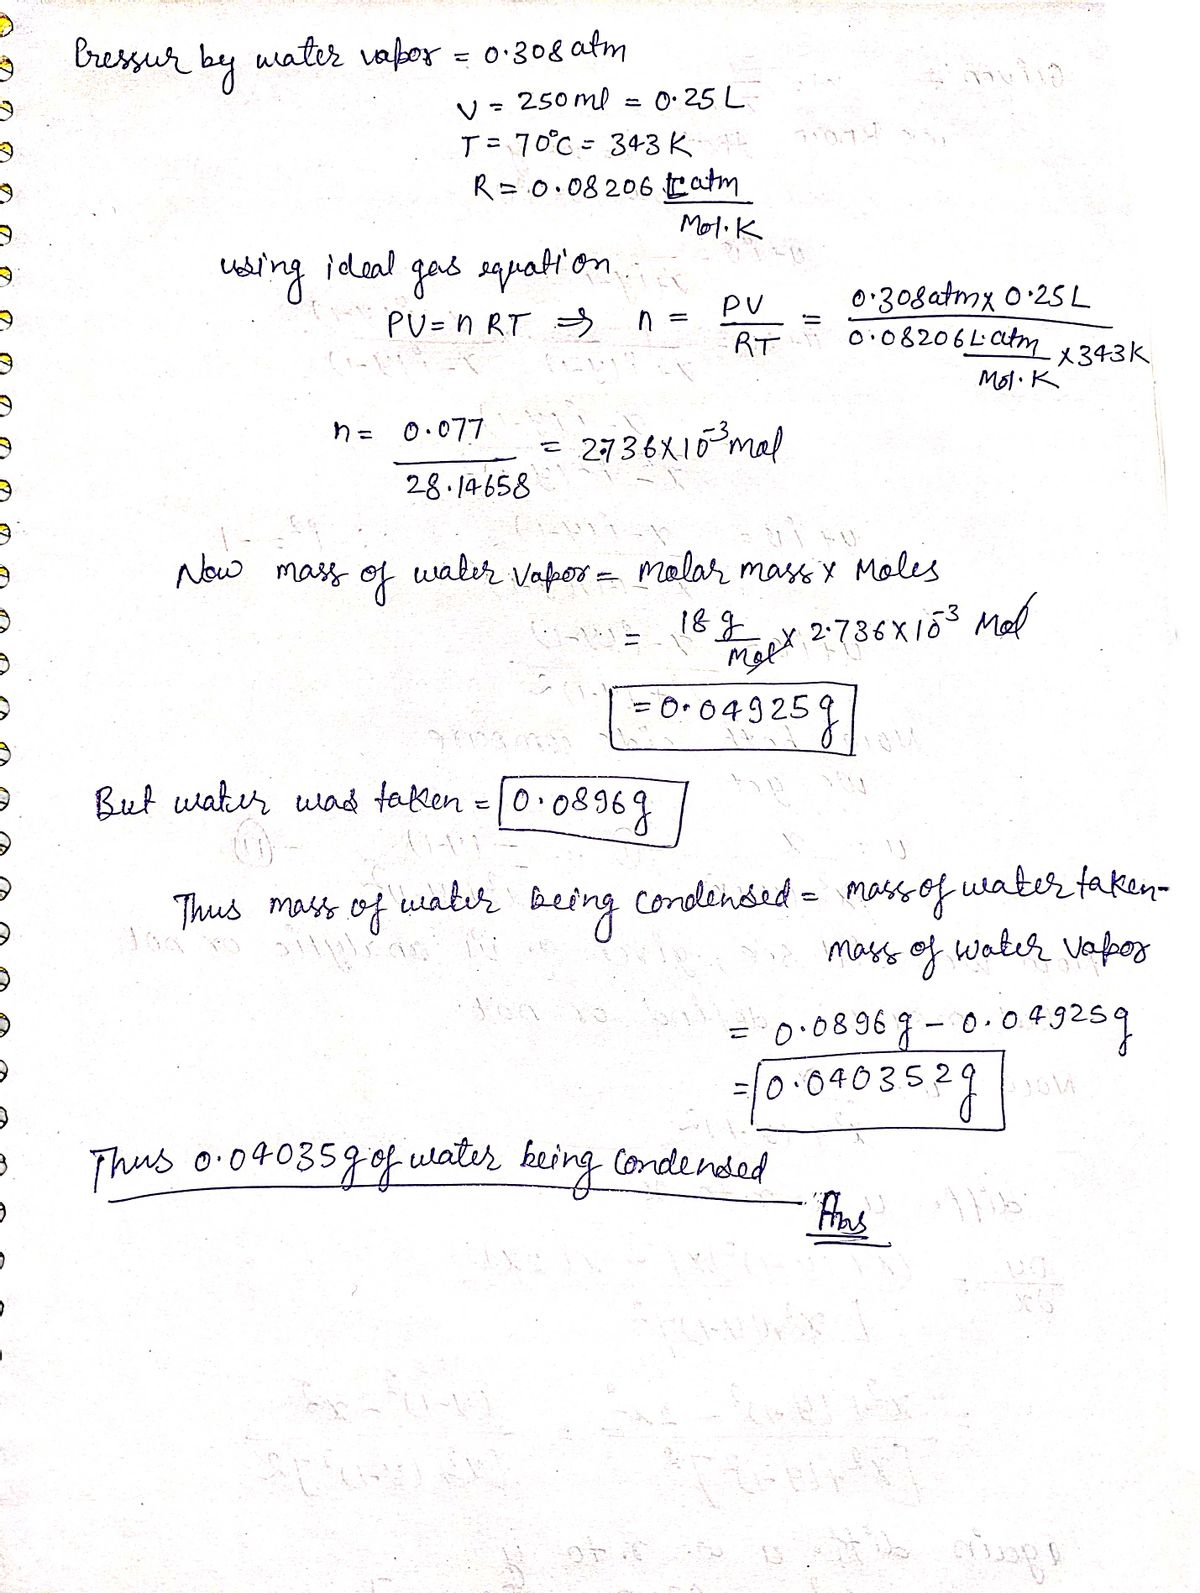 Pressur by water vapor = 0.308 atm
V = 250 ml = 0.25 L
T = 70°C = 343 K
R = 0.08206 L atm / Mol. K
using ideal gas equation
PV = n RT ⇒ n = PV / RT = 0.308 atm x 0.25 L / 0.08206 L. atm / Mol. K x 343 K
n = 0.077 / 28.14658 = 2.736 x 10⁻³ mol
Now mass of water vapor = molar mass x Moles
= 18 g / Mol x 2.736 x 10⁻³ Mol
= 0.04925 g
But water was taken = 0.0896 g
Thus mass of water being condensed = mass of water taken -
mass of water vapor
= 0.0896 g - 0.04925 g
= 0.040352 g
Thus 0.04035 g of water being condensed
Ans